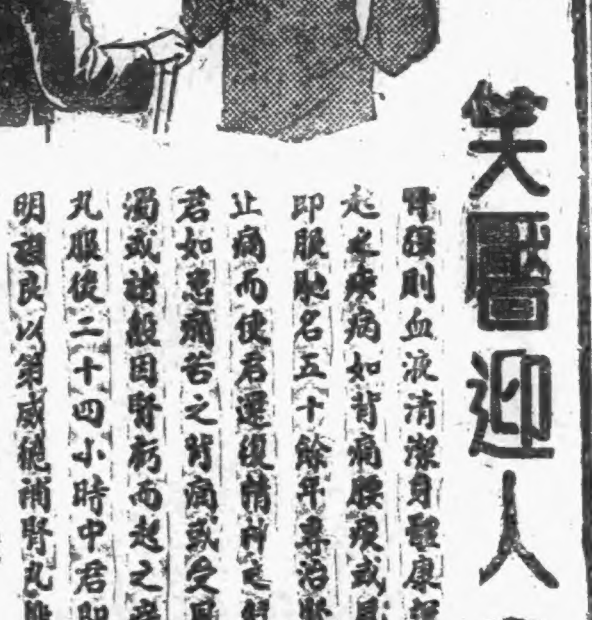 笑靨迎人
腎強則血液清潔身體康
起之疾病如背痛腰痠或
即服馳名五十餘年專治腎
止痛而使君還復精神之
君如患痛苦之背痛或受
濁或諸般因腎虧而起之
丸服後二十四小時中君即
明證良以第威德補腎丸